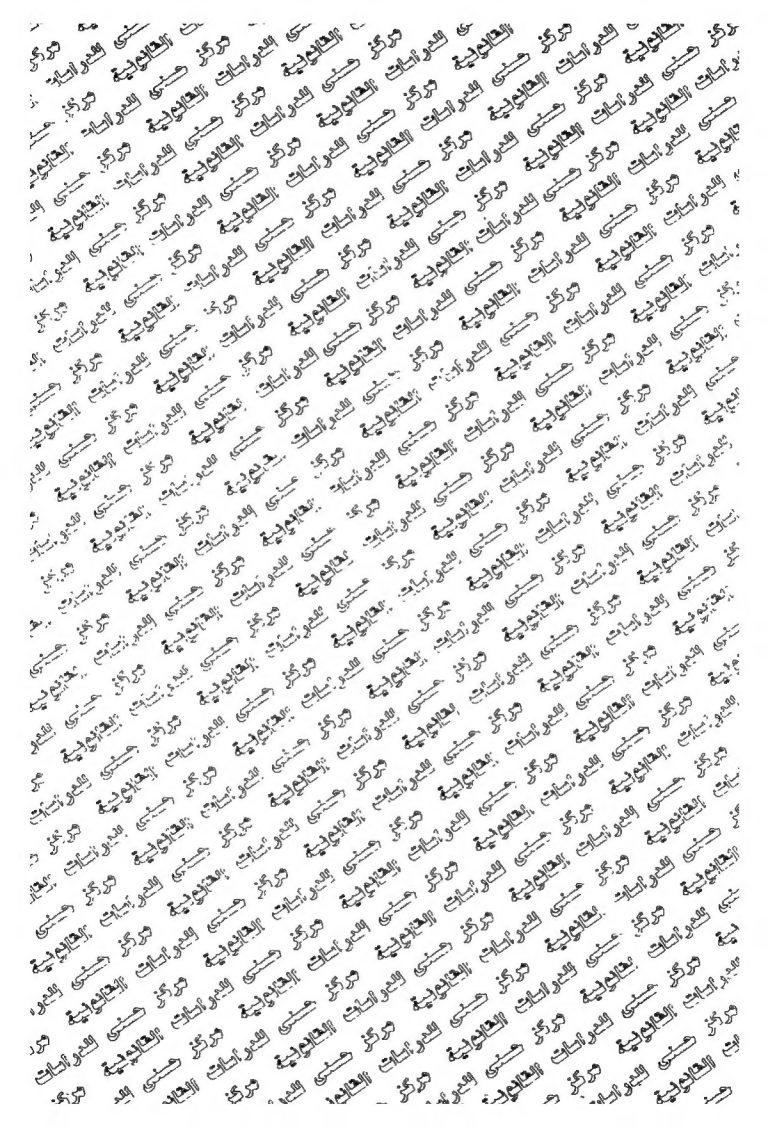 مركز حسنى للدراسات القانونية